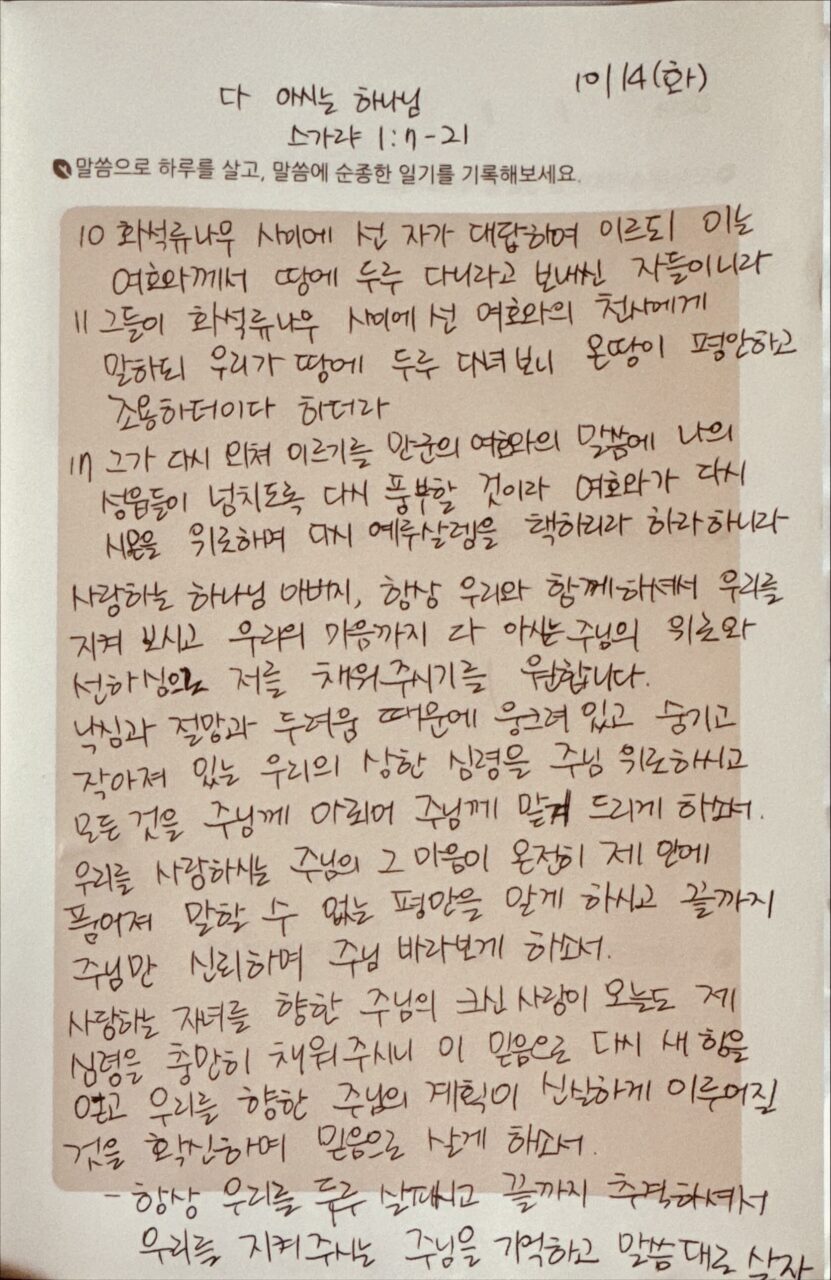 10/14(화)
다 아시는 하나님
스가랴 1:7-21
말씀으로 하루를 살고, 말씀에 순종한 일기를 기록해보세요.
10 화석류나무 사이에 선 자가 대답하여 이르되 이는
여호와께서 땅에 두루 다니라고 보내신 자들이니라
11 그들이 화석류나무 사이에 선 여호와의 천사에게
말하되 우리가 땅에 두루 다녀보니 온땅이 평안하고
조용하더이다 하더라
17 그가 다시 외쳐 이르기를 만군의 여호와의 말씀에 나의
성읍들이 넘치도록 다시 풍부할 것이라 여호와가 다시
시온을 위로하며 다시 예루살렘을 택하리라 하라하니라
사랑하는 하나님 아버지, 항상 우리와 함께하셔서 우리를
지켜 보시고 우리의 마음까지 다 아시는 주님의 위로와
선하심으로 저를 채워주시기를 원합니다.
낙심과 절망과 두려움 때문에 웅크려 있고 숨기고
작아져 있는 우리의 상한 심령을 주님 위로하시고
모든 것을 주님께 아뢰어 주님께 맡겨 드리게 하소서.
우리를 사랑하시는 주님의 그 마음이 온전히 제 안에
품어져 말할 수 없는 평안을 알게 하시고 끝까지
주님만 신뢰하며 주님 바라보게 하소서.
사랑하는 자녀를 향한 주님의 크신 사랑이 오늘도 제
심령을 충만히 채워주시니 이 믿음으로 다시 새 힘을
얻고 우리를 향한 주님의 계획이 신실하게 이루어질
것을 확신하며 믿음으로 살게 하소서.
- 항상 우리를 두루 살피시고 끝까지 추격하셔서
우리를 지켜주시는 주님을 기억하고 말씀대로 살자